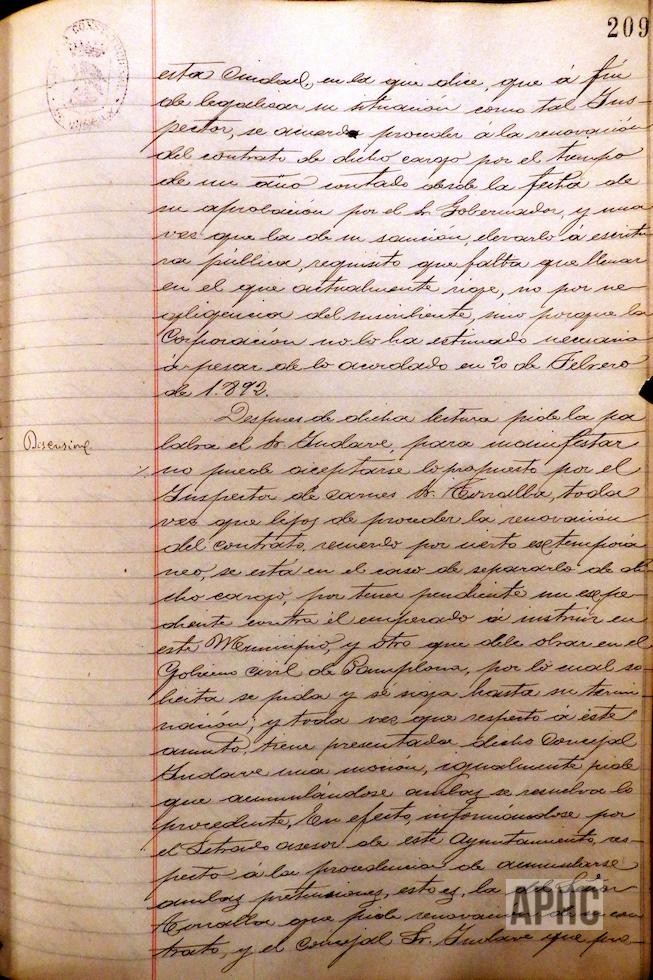 209
esta Ciudad, en la que dice, que á fin
de legalizar su situacion como tal Ins-
pector, se acuerde proceder a la renovación
del contrato de dicho cargo por el tiempo
de un año contado desde la fecha de
su aprobación por el Sr Gobernador, y una
vez que la dé su sanción, elevarlo á escritu
ra pública, requisito que falta que llenar
en el que actualmente rige, no por ne-
gligencia del suscribiente, sino porque la
Corporación no lo ha estimado necesario
á pesar de lo acordado en 20 de Febrero
de 1.892.
Despues de dicha lectura pide la pa
Discusion
labra el Sr Indave, para manifestar
no puede aceptarse lo propuesto por el
Inspector de carnes Sr. Torralba, toda
vez que lejos de proceder la renovación
del contrato, recuerdo por cierto extemporá
neo, se está en el caso de separarlo de di
cho cargo, por tener pendiente un expe
diente contra él empezado á instruir en
este Municipio, y otro que debe obrar en el
Gobierno civil de Pamplona, por lo cual so-
licita se pida y se siga hasta su termi
nación; y toda vez que respecto á este
asunto, tiene presentada dicho Concejal
Indave una moción, igualmente pide
que acumulándose ambas se resuelva lo
procedente. En efecto, informándose por
el Letrado asesor de este Ayuntamiento, res-
pecto á la procedencia de acumularse
ambas pretensiones, esto es, la del Señor
Torralba que pide renovación de su con
trato, y el concejal Sr. Indave que pro-
APHC